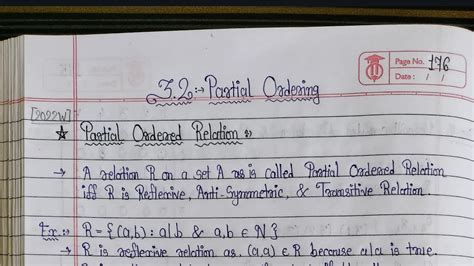 Page No. 176
Date: / /
3.2:- Partial Ordering
[2022W]
☆ Partial Ordered Relation :-
→ A relation R on a set A as is called Partial Ordered Relation
iff R is Reflexive, Anti-Symmetric, & Transitive Relation.
Ex:- R = {(a,b) : a|b & a,b ∈ N}
→ R is reflexive relation as. (a,a) ∈ R because a|a is true.